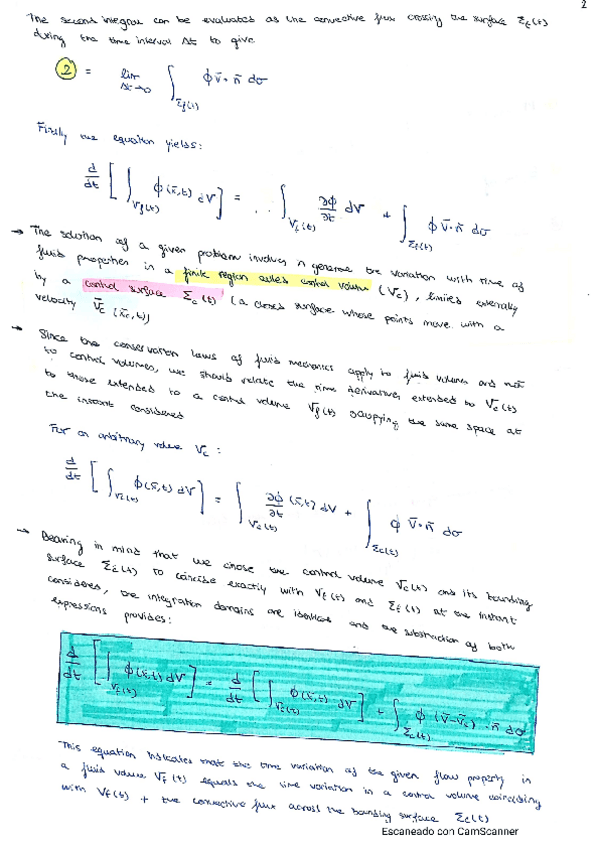 2
The second integral can be evaluated as the convective flux crossing the surface Σf(t)
during the time interval Δt to give
② = lim Δt→0 ∫Σf(t) ϕ v̄·n̄ dσ
the equation yields:
d/dt [∫Vf(t) ϕ(x̄,t) dV] = ... ∫Vf(t) ∂ϕ/∂t dV + ∫Σf(t) ϕ v̄·n̄ dσ
→ The solution of a given problem involves in general the variation with time of
fluid properties in a finite region called control volume (Vc), limited externally
by a control surface Σc(t) (a closed surface whose points move with a
velocity v̄c (x̄c,t))
→ Since the conservation laws of fluid mechanics apply to fluid volumes and not
to control volumes, we should relate the time derivatives extended to Vc(t)
to those extended to a control volume Vf(t) occupying the same space at
the instant considered
For an arbitrary volume Vc:
d/dt [∫Vc(t) ϕ(x̄,t) dV] = ∫Vc(t) ∂ϕ/∂t (x̄,t) dV + ∫Σc(t) ϕ v̄·n̄ dσ
→ Bearing in mind that we chose the control volume Vc(t) and its bounding
surface Σc(t) to coincide exactly with Vf(t) and Σf(t) at the instant
considered, the integration domains are identical and the substraction of both
expressions provides:
d/dt [∫Vf(t) ϕ(x̄,t) dV] = d/dt [∫Vc(t) ϕ(x̄,t) dV] + ∫Σc(t) ϕ (v̄-v̄c)·n̄ dσ
This equation indicates that the time variation of the given flow property in
a fluid volume Vf(t) equals the time variation in a control volume coinciding
with Vf(t) + the convective flux across the bounding surface Σc(t)
Escaneado con CamScanner